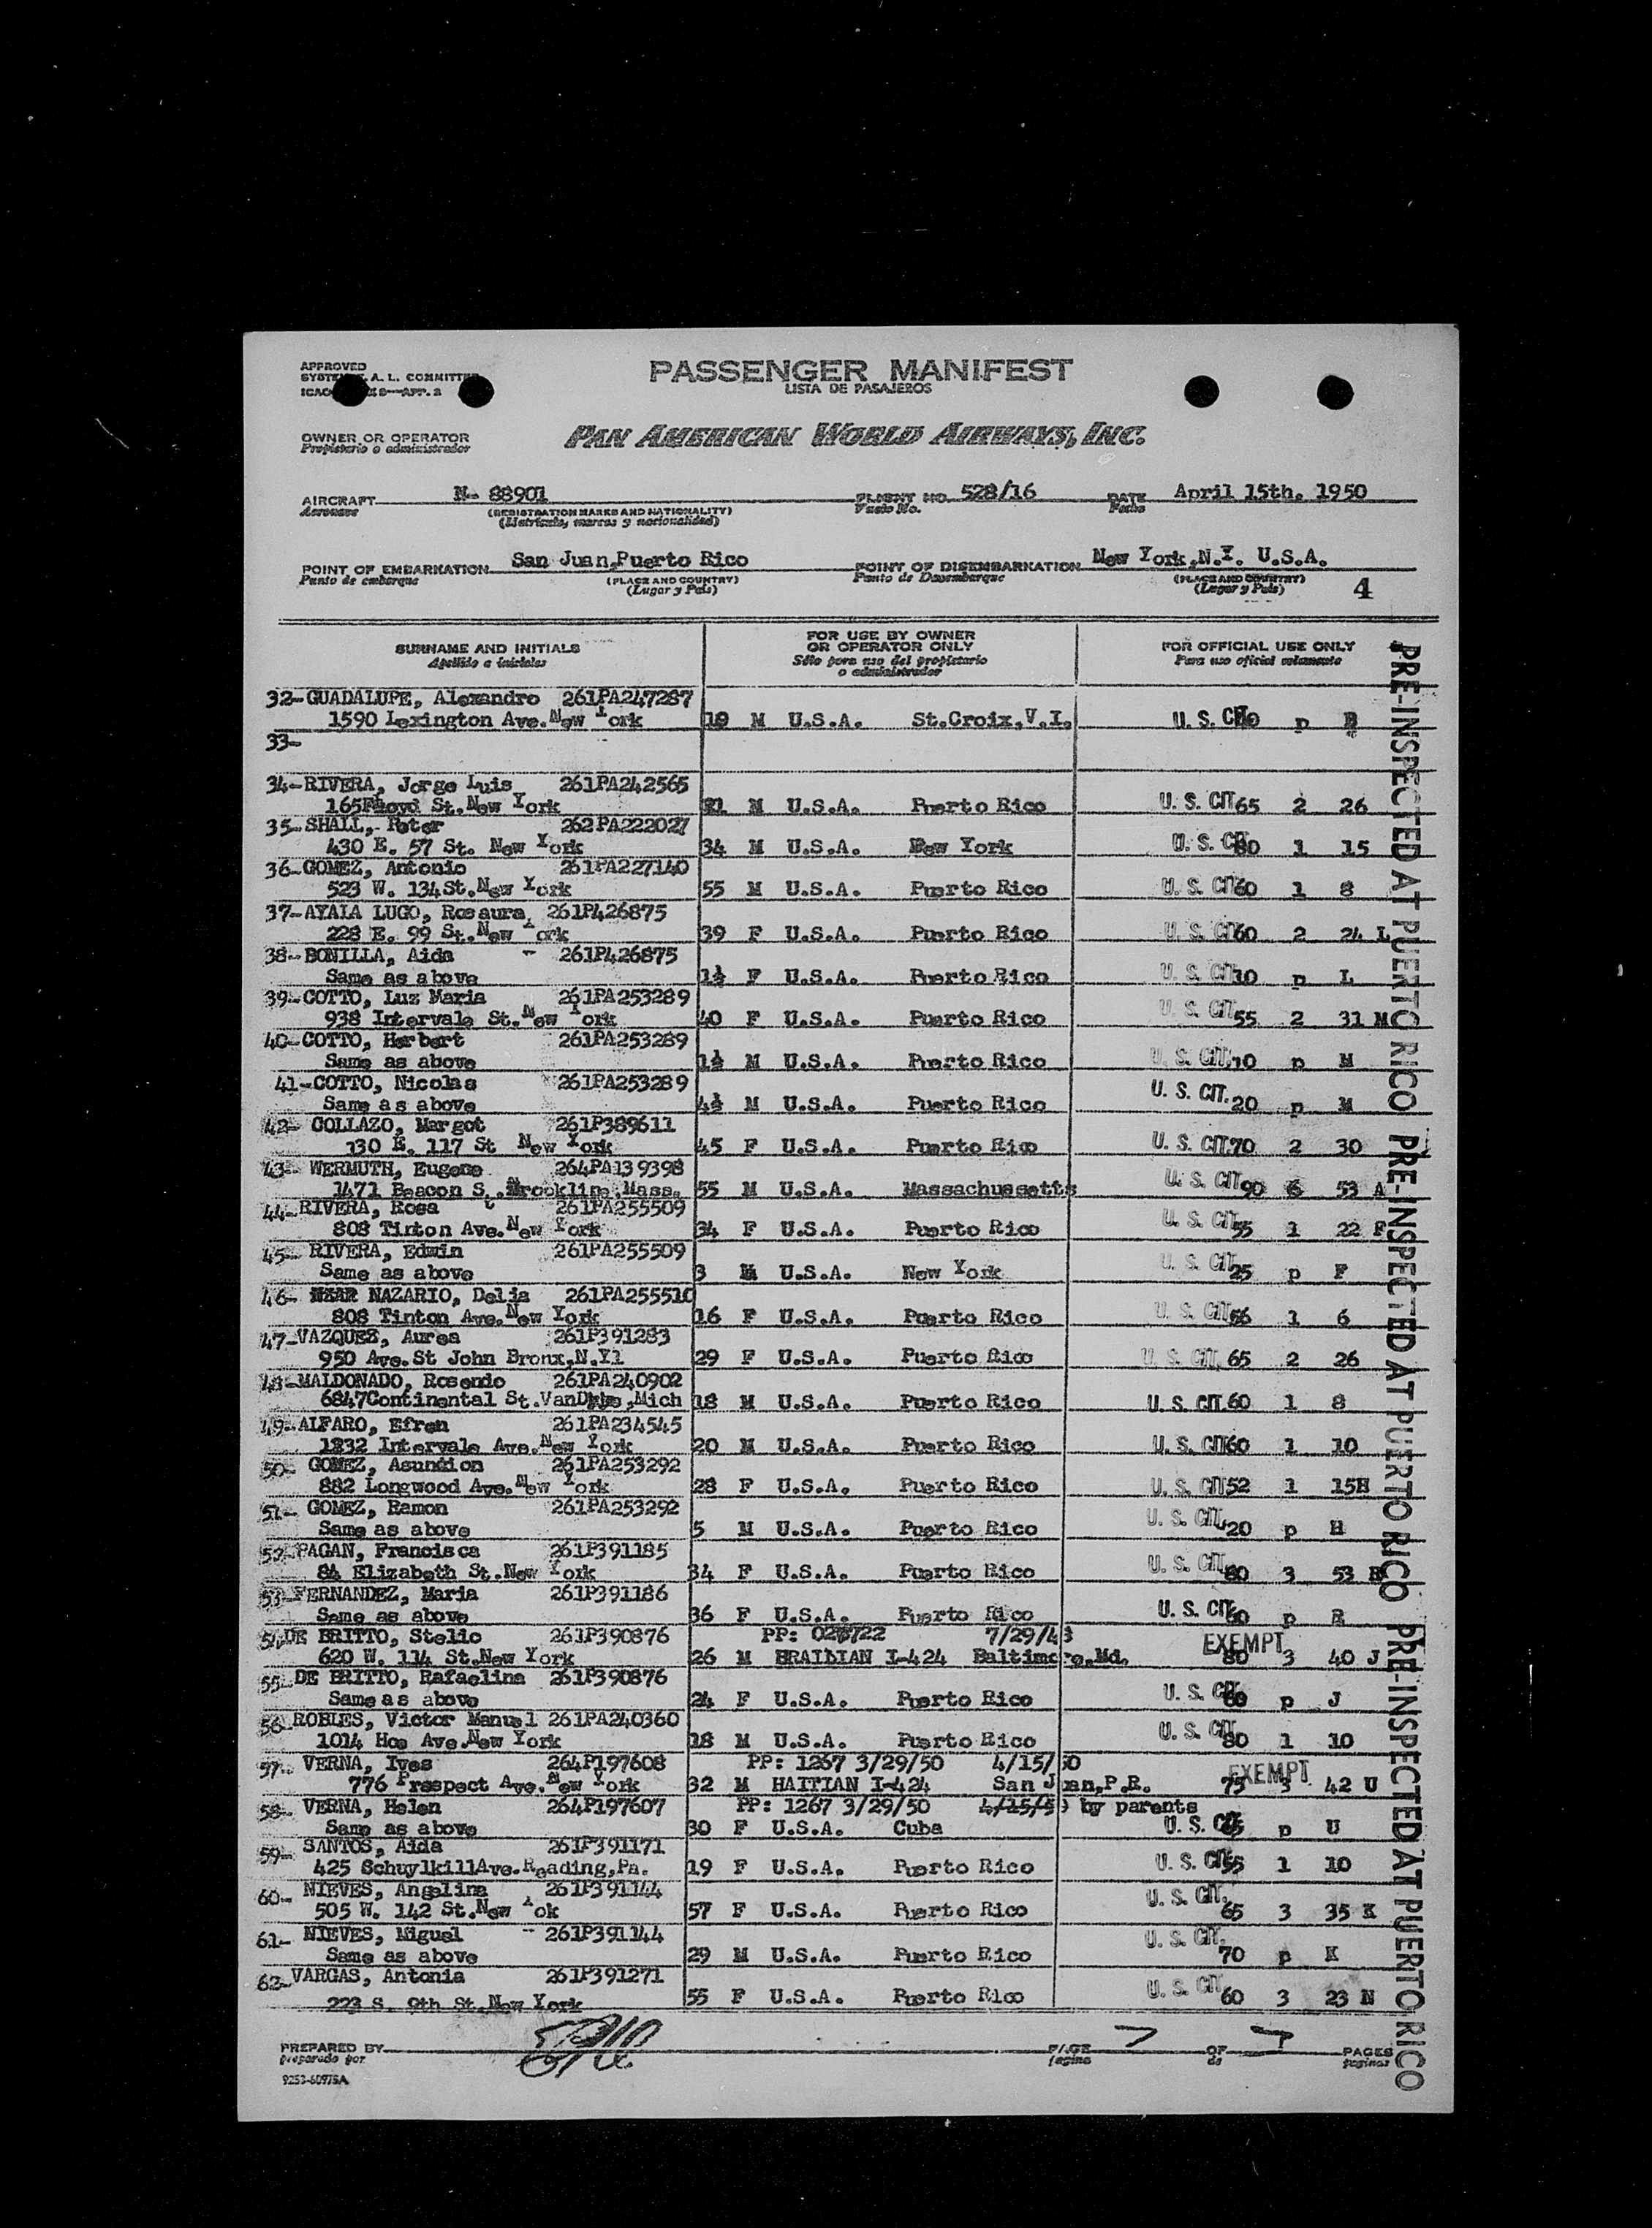 APPROVED
PASSENGER MANIFEST
A. L. COMMITTEE
LISTA DE PASAJEROS
OWNER OR OPERATOR
Propietario o administrador
PAN AMERICAN WORLD AIRWAYS, INC.
AIRCRAFT N- 88901 FLIGHT NO. 528/16 DATE April 15th. 1950
Aeronave (REGISTRATION MARKS AND NATIONALITY) Vuelo No. Fecha
(Matrícula, marcas y nacionalidad)
POINT OF EMBARKATION San Juan,Puerto Rico POINT OF DISEMBARKATION New York,N.Y. U.S.A.
Punto de embarque (PLACE AND COUNTRY) Punto de Desembarque (PLACE AND COUNTRY)
(Lugar y País) (Lugar y País) 4
SURNAME AND INITIALS FOR USE BY OWNER OR OPERATOR ONLY FOR OFFICIAL USE ONLY
Apellido e iniciales Sólo para uso del propietario o administrador Para uso oficial solamente
32- GUADALUPE, Alexandro 261PA247287
1590 Lexington Ave.New York 19 M U.S.A. St.Croix,V.I. U. S. CIT p B
33-
34- RIVERA, Jorge Luis 261PA242565
St.New York M U.S.A. Puerto Rico U. S. CIT 65 2 26
35- SHALL, Peter 262PA222027
430 E. 57 St. New York 34 M U.S.A. New York U. S. CIT 80 1 15
36- GOMEZ, Antonio 261PA227140
523 W. 134St.New York 55 M U.S.A. Puerto Rico U. S. CIT 60 1 8
37- AYALA LUGO, Rosaura 261P426875
228 E. 99 St.New York 39 F U.S.A. Puerto Rico U. S. CIT 60 2 24 L
38- BONILLA, Aida - 261P426875
Same as above 1½ F U.S.A. Puerto Rico U. S. CIT 10 p L
39- COTTO, Luz Maria 261PA253289
938 Intervale St.New York 40 F U.S.A. Puerto Rico U. S. CIT 55 2 31 M
40- COTTO, Herbert 261PA253289
Same as above 1½ M U.S.A. Puerto Rico U. S. CIT. 10 p M
41- COTTO, Nicolas 261PA253289
Same as above 4½ M U.S.A. Puerto Rico U. S. CIT. 20 p M
42- COLLAZO, Margot 261P389611
130 E. 117 St New York 45 F U.S.A. Puerto Rico U. S. CIT. 70 2 30
43- WERMUTH, Eugene 264PA139398
1471 Beacon St.Brookline,Mass. 55 M U.S.A. Massachussetts U. S. CIT 90 6 53 A
44- RIVERA, Rosa 261PA255509
808 Tinton Ave.New York 34 F U.S.A. Puerto Rico U. S. CIT 55 1 22 F
45- RIVERA, Edwin 261PA255509
Same as above 3 M U.S.A. New York U. S. CIT 25 p F
46- NAZARIO, Delia 261PA255510
808 Tinton Ave.New York 16 F U.S.A. Puerto Rico U. S. CIT 1 6
47- VAZQUEZ, Aurea 261P391283
950 Ave.St John Bronx,N.Y1 29 F U.S.A. Puerto Rico U. S. CIT. 65 2 26
48- MALDONADO, Rosendo 261PA240902
6847Continental St. Mich 18 M U.S.A. Puerto Rico U. S. CIT. 60 1 8
49- ALFARO, Efren 261PA234545
1332 Intervale Ave.New York 20 M U.S.A. Puerto Rico U. S. CIT 60 1 10
50- GOMEZ, Asundion 261PA253292
882 Longwood Ave.New York 28 F U.S.A. Puerto Rico U. S. CIT 52 1 15H
51- GOMEZ, Ramon 261PA253292
Same as above 5 M U.S.A. Puerto Rico U. S. CIT. 20 p H
52- PAGAN, Francisca 261P391185
84 Elizabeth St.New York 34 F U.S.A. Puerto Rico U. S. CIT. 80 3 53 R
53- FERNANDEZ, Maria 261P391186
Same as above 36 F U.S.A. Puerto Rico U. S. CIT. p R
54- DE BRITTO, Stelio 261P390876 PP: 7/29/48
620 W. 114 St.New York 26 M BRAILIAN I-424 Baltimore,Md. EXEMPT 80 3 40 J
55- DE BRITTO, Rafaelina 261P390876
Same as above 24 F U.S.A. Puerto Rico U. S. CIT p J
56- ROBLES, Victor Manuel 261PA240360
1014 Hoe Ave.New York 18 M U.S.A. Puerto Rico U. S. CIT 80 1 10
57- VERNA, Ives 264P197608 PP: 1267 3/29/50 4/15/50
776 Prospect Ave.New York 32 M HAITIAN I-424 San Juan,P.R. EXEMPT 75 3 42 U
58- VERNA, Helen 264P197607 PP: 1267 3/29/50 4/15/50 by parents
Same as above 30 F U.S.A. Cuba U. S. CIT p U
59- SANTOS, Aida 261P391171
425 SchuylkillAve.Reading,Pa. 19 F U.S.A. Puerto Rico U. S. CIT 55 1 10
60- NIEVES, Angelina 261P391144
505 W. 142 St.New Yok 57 F U.S.A. Puerto Rico U. S. CIT. 65 3 35 K
61- NIEVES, Miguel - 261P391144
Same as above 29 M U.S.A. Puerto Rico U. S. CIT. 70 p K
62- VARGAS, Antonia 261P391271
223 S. 9th St.New York 55 F U.S.A. Puerto Rico U. S. CIT 60 3 23 N
PREPARED BY PAGE 7 OF 7 PAGES
preparado por página de páginas
9253-60975A
PRE-INSPECTED AT PUERTO RICO PRE-INSPECTED AT PUERTO RICO PRE-INSPECTED AT PUERTO RICO